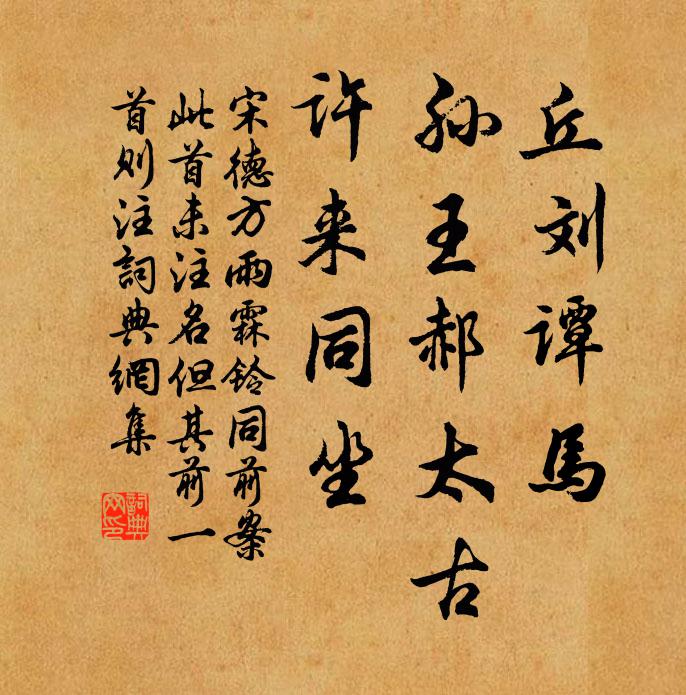 丘刘谭馬
孙王郝太古
许来同坐
宋德方雨霖铃同前案
此首未注名但其前一
首则注詞典網集
詞典
网印